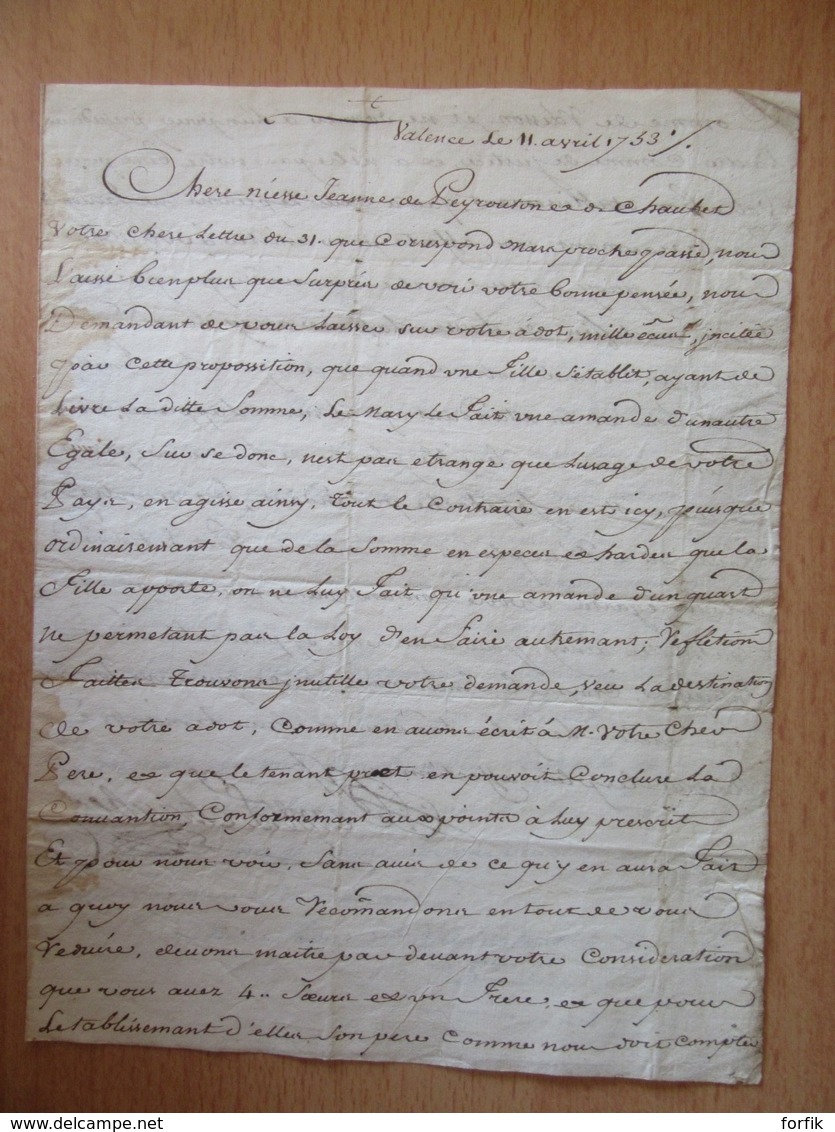 Valence Le 11. avril 1753 ./.
Chere niesse Jeanne de Peyrouton et de Chaubet
Votre chere Lettre du 31. que Correspond Mars proche passé, nous
Laisse bien plus que Surpris de voir votre bonne pensée, nous
Demandant de vous Laisser sur votre adot, mille écus, jncitée
par Cette propossition, que quand vne Fille S'etablit, ayant de
Livre La ditte Somme, Le Mary Le Fait vne amande d'un autre
Egale, sur se donc, n'est pas etrange que Lusage de votre
Pays, en agisse ainsy, tout le Contraire en est icy, puisque
ordinairemant que de la Somme en especes et hardes que la
Fille apporte, on ne Luy Fait, qu'vne amande d'un quart
ne permetant pas la Loy d'en Faire autremant; Refletion
Faittes trouvons jnutille votre demande, veu La destination
de votre adot, Comme en avons écrit à M. Votre Cher
Pere, et que le tenant pret en pouvoit Conclure La
Convantion, Conformemant aux points à Luy prescrit
Et pour nous voir, sans avis de ce qu'y en aura Fait
a quoy nous vous Recomandons en tout de vous
Reduire, devons maitre par devant votre Consideration
que vous avez 4.. Sœurs et vn Frere, et que pour
Letablissemant d'elles son pere Comme nous doit Compter
delcampe.net
forfik